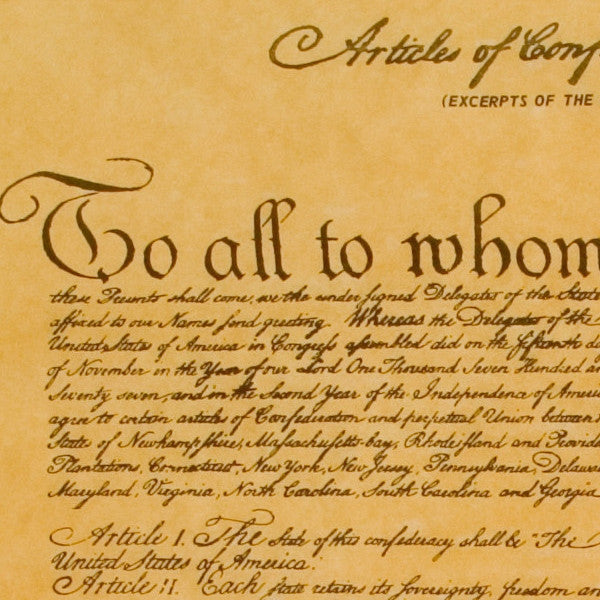 Articles of Conf
(EXCERPTS OF THE
To all to whom
these Presents shall come, we the under signed Delegates of the State
affixed to our Names send greeting. Whereas the Delegates of the
United States of America in Congress assembled did on the fifteenth d
of November in the Year of our Lord One Thousand Seven Hundred an
Seventy seven, and in the Second Year of the Independence of Americ
agree to certain articles of Confederation and perpetual Union between
States of Newhampshire, Massachusetts-bay, Rhodeisland and Provide
Plantations, Connecticut, New York, New Jersey, Pennsylvania, Delawar
Maryland, Virginia, North Carolina, South Carolina and Georgia
Article I. The State of this confederacy shall be "The
United States of America.
Article II. Each state retains its sovereignty, freedom an